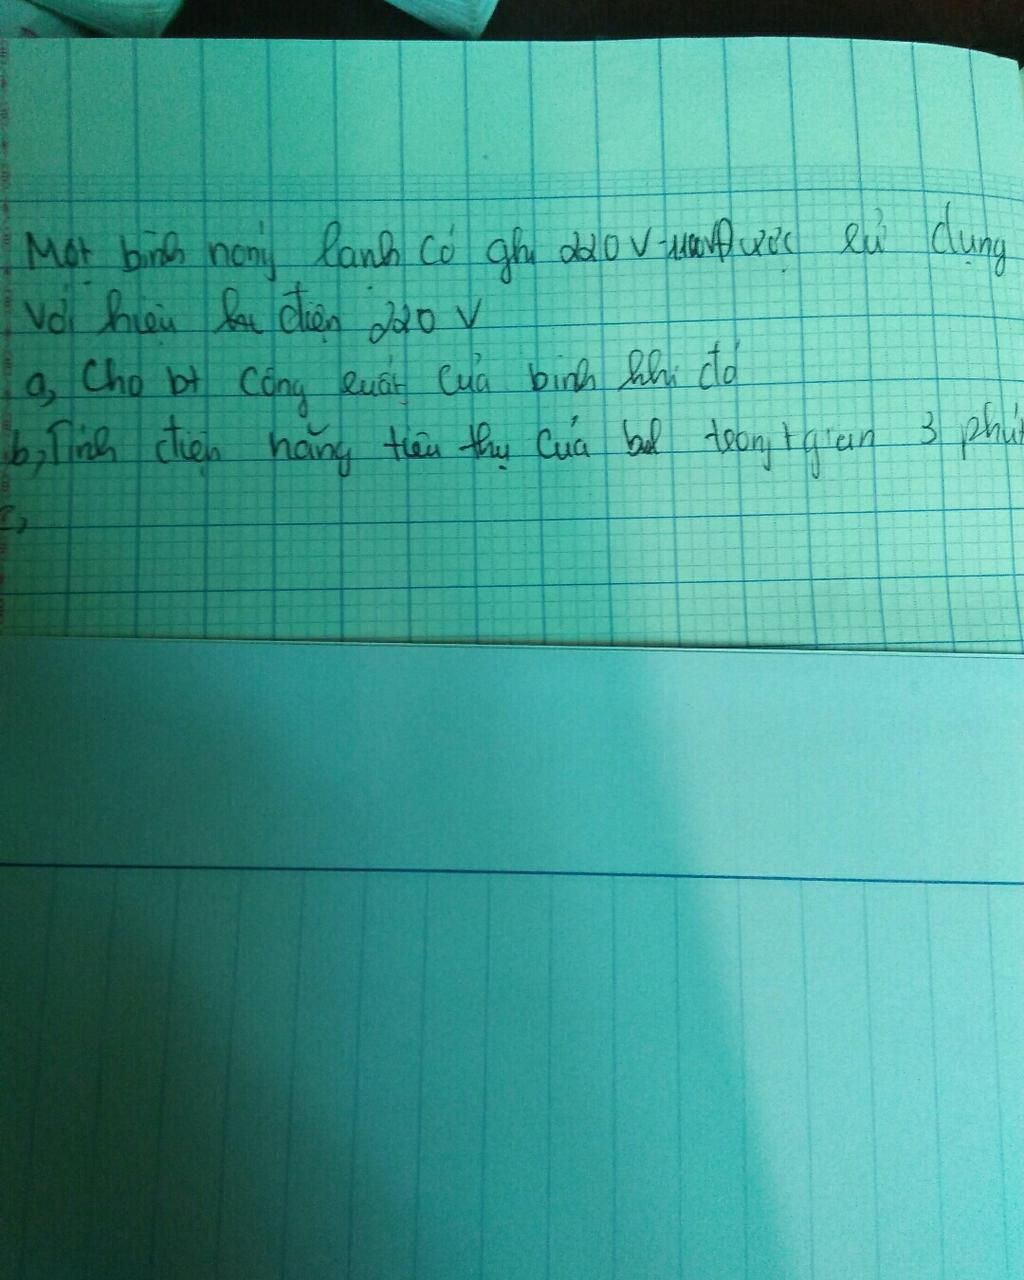 Một bình nóng lạnh có ghi 220 V được sử dụng
với hiệu điện 220 V
a, Cho bt công suất của bình khi đó
b, Tính điện năng tiêu thụ của trong t gian 3 phút
c,